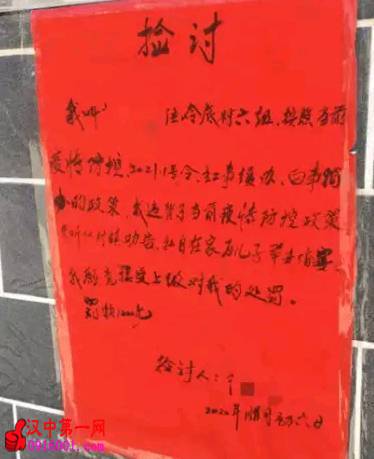 捡讨
我叫 住冷底村六组,按照当前
疫情防控2021.1号令,红事缓办、白事简
办的政策,我违背了当前疫情防控政策
劝告,私自在家为儿子举办婚宴
我 接受上级对我的处罚。
罚款1000元
捡讨人:
2020年腊月初六日
汉中第一网
0916001.com